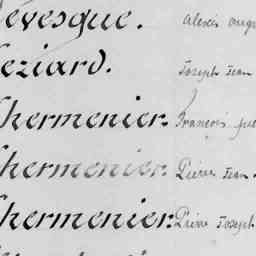 evesque. Alexis
eziard. Joseph Jean
hermenier. François
hermenier. Pierre Jean
hermenier. Pierre Joseph